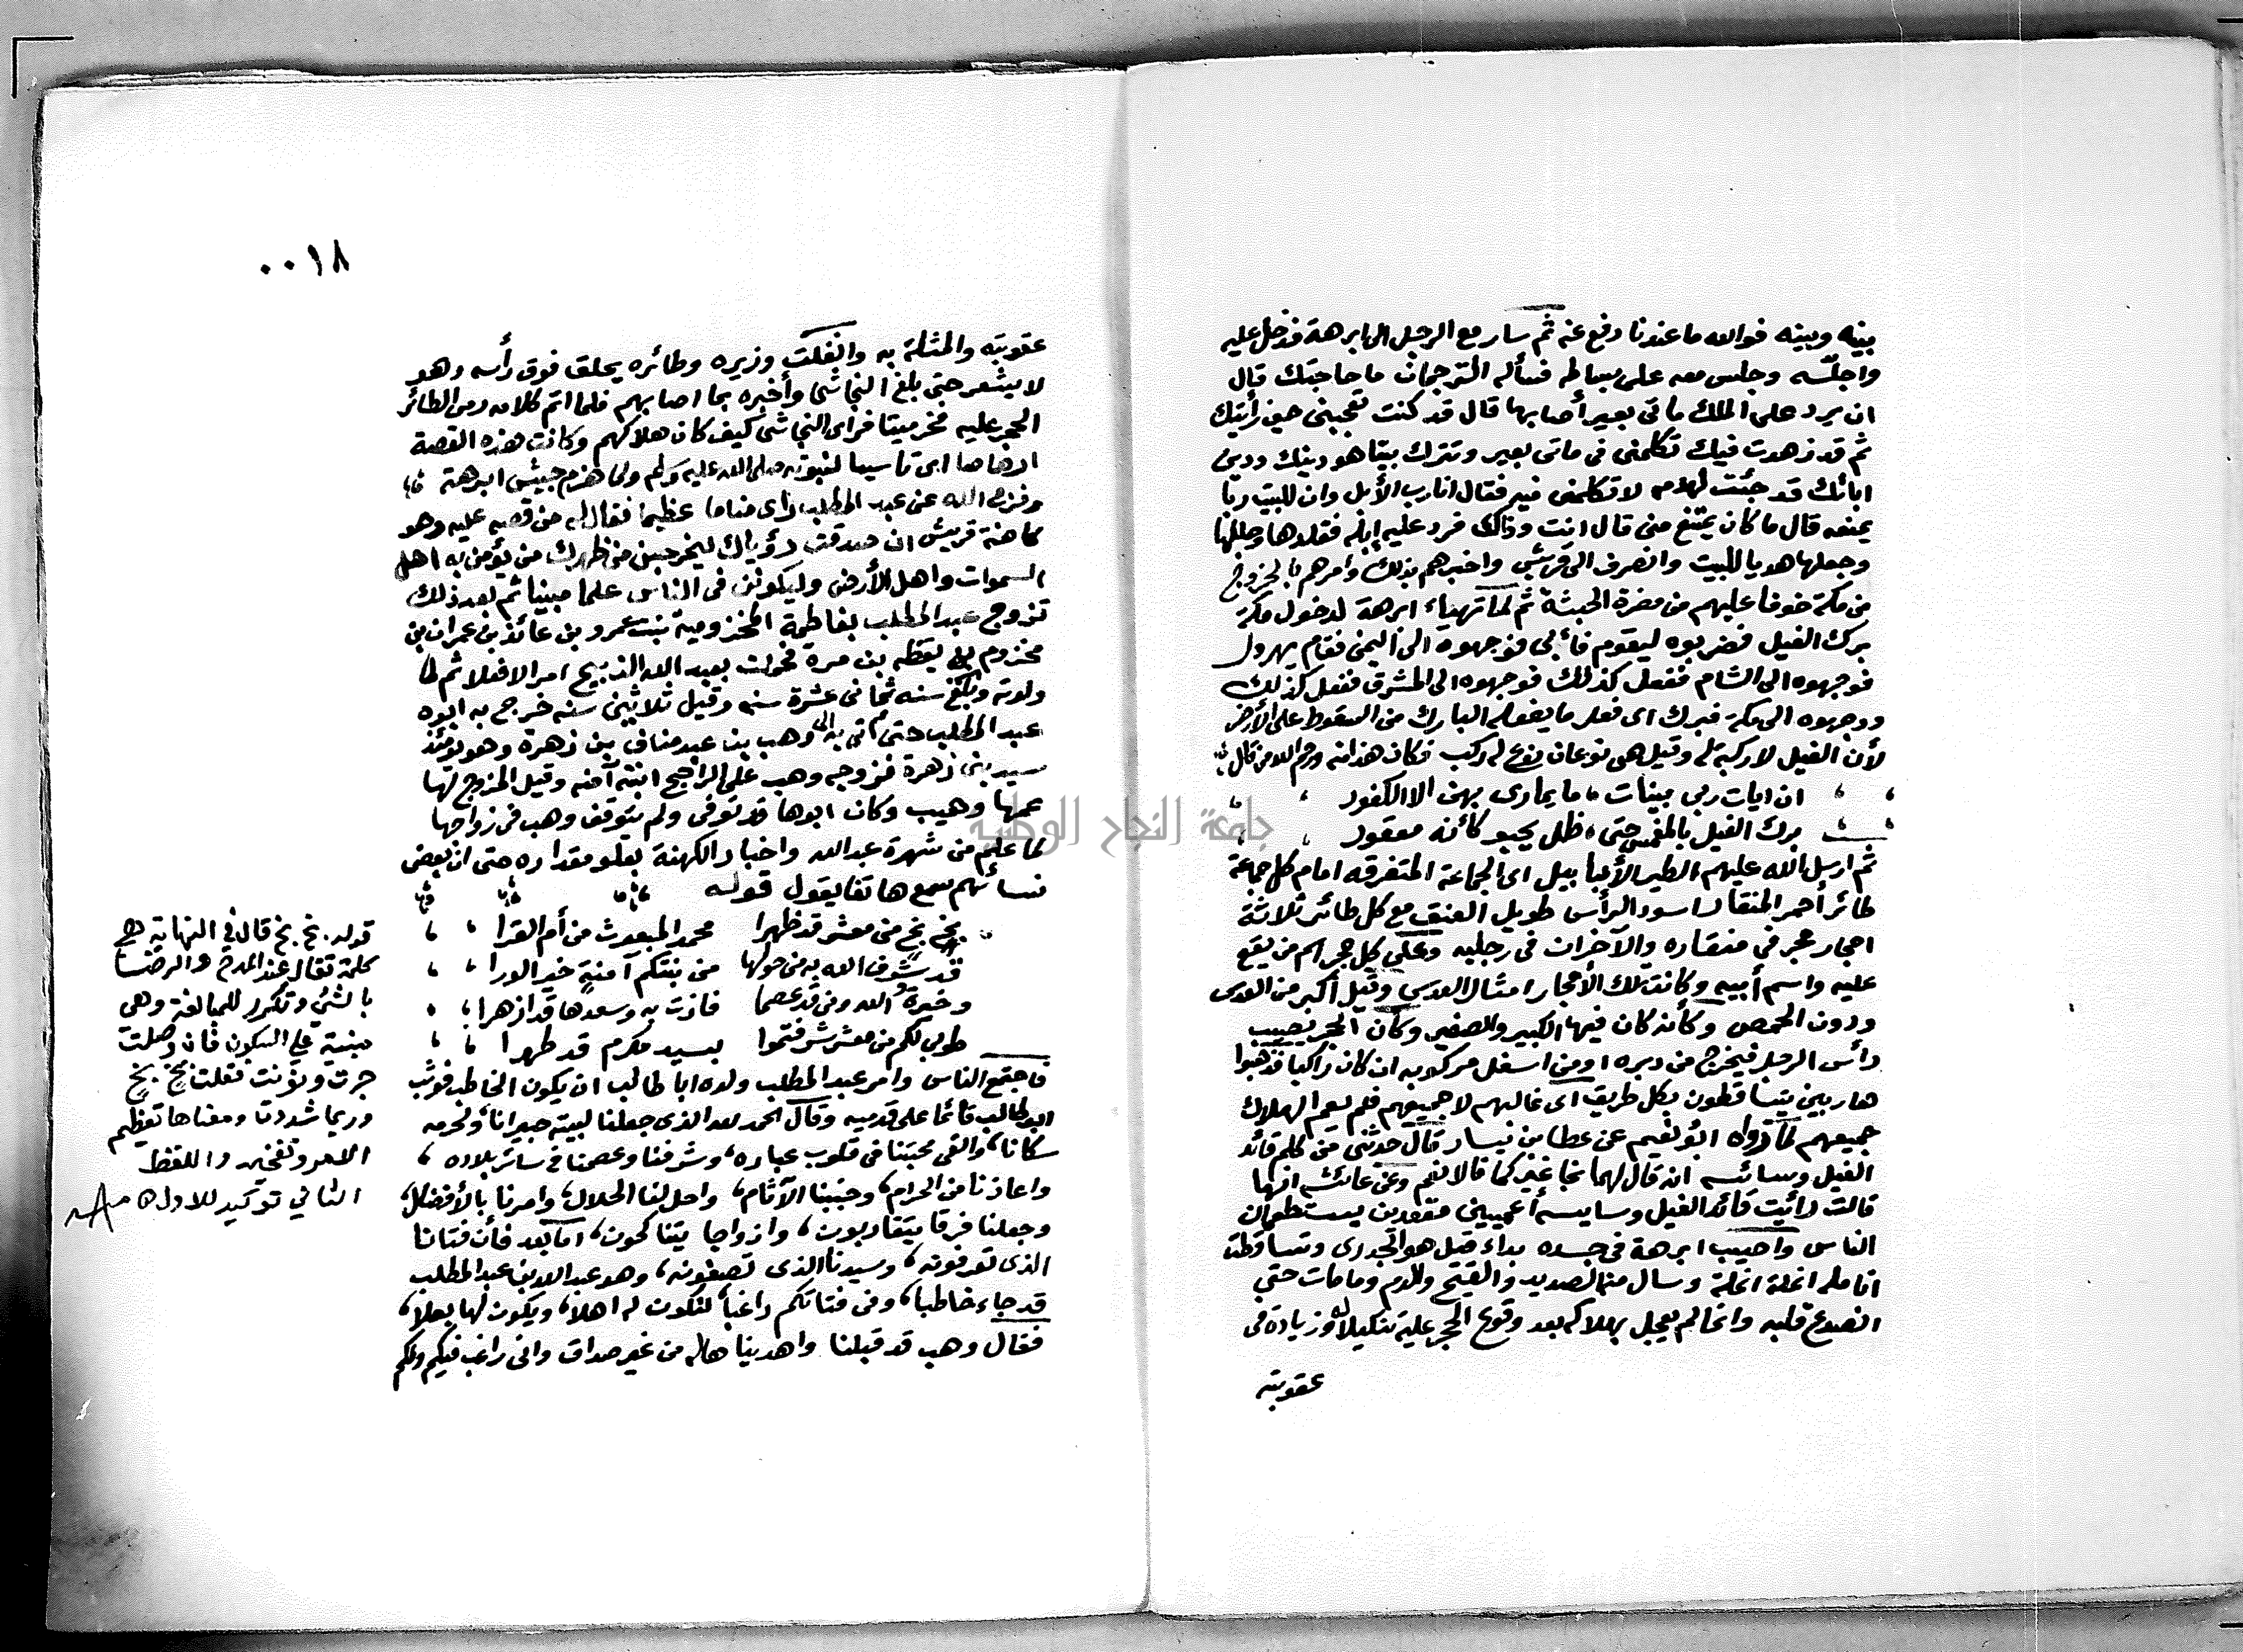 بينه وبينه فوالله ما عندنا دفع عنه ثم سار مع الرجل الى ابرهة فدخل عليه
واجلسه وجلس معه على بساطه فسأله الترجمان ما حاجتك قال
ان يرد على الملك ماتى بعير أصابها قال قد كنت تعجبنى حين رأيتك
ثم قد زهدت فيك تكلمنى فى ماتى بعير وتترك بيتا هو دينك ودين
ابائك قد جئت لهدمه لا تكلمنى فيه فقال انا رب الأبل وان للبيت ربا
يمنعه قال ما كان يمتنع منى قال انت وذالك فرد عليه ابله فقلدها وجللها
وجعلها هديا للبيت وانصرف الى قريش واخبرهم بذلك وامرهم بالخروج
من مكة خوفا عليهم من مضرة الحبشة ثم لما تهياء ابرهة لدخول مكة
برك الفيل فضربوه ليقوم فأبى فوجهوه الى اليمن فقام يهرول
فوجهوه الى الشام ففعل كذلك فوجهوه الى المشرق ففعل كذلك
ووجهوه الى مكة فبرك اى فعل ما يفعله البارك من السقوط على الأرض
لأن الفيل لا ركبة له وقيل هى نوعان نوع له ركب فكان هذا منه ورحم الله من قال
ان ايات ربى بينات ما يمارى بهن الا الكفور
برك الفيل بالمغمس حتى ظل يحبو كأنه معقور
ثم ارسل الله عليهم الطير الأبابيل اى الجماعة المتفرقه امام كل جماعة
طائر أحمر المنقار اسود الرأس طويل العنق مع كل طائر ثلاثة
احجار حجر في منقاره والآخران فى رجليه وعلى كل حجر اسم من يقع
عليه واسم أبيه وكانت تلك الأحجار امثال العدس وقيل أكبر من العدس
ودون الحمص وكأنه كان فيها الكبير والصغير وكان الحجر يصيب
رأس الرجل فيخرج من دبره او من اسفل مركوبه ان كان راكبا فذهبوا
هاربين يتساقطون بكل طريق اى غالبهم لا جميعهم فلم يعم الهلاك
جميعهم لما رواه ابو نعيم عن عطا بن يسار قال حدثنى من كلم قائد
الفيل وسائسه انه قال لهما نجا غيركما قالا نعم وعن عائشه انها
قالت رأيت قائد الفيل وسايسه أعميين مقعدين يستطعمان
الناس واصيب ابرهة فى جسده بداء قيل هو الجدرى وتساقطت
انامله انملة انملة وسال منه الصديد والقيح والدم وما مات حتى
انصدع قلبه وانما لم يعجل بهلاكه بعد وقوع الحجر عليه تنكيلا له وزيادة فى
عقوبته
٠٠١٨
عقوبته والمثلة به وانفلت وزيره وطائره يحلق فوق رأسه وهو
لا يشعر حتى بلغ النجاشى وأخبره بما اصابهم فلما اتم كلامه رمى الطائر
الحجر عليه فخر ميتا فراى النجاشى كيف كان هلاكهم وكانت هذه القصة
ارهاصا اى تاسيسا لنبوته صلى الله عليه وسلم ولما هزم جيش ابرهة
وفرج الله عن عبد المطلب راى مناما عظيما فقال له من قصه عليه وهو
كاهنة قريش ان صدقت رؤياك ليخرجن من ظهرك من يؤمن به اهل
السموات واهل الأرض وليكونن فى الناس علما مبينا ثم بعد ذلك
تزوج عبد المطلب بفاطمة المخزومية بنت عمرو بن عائذ بن عمران بن
مخزوم بن يقظه بن مرة فحملت بعبد الله الذبيح امر الافعلا ثم لما
ولدته وبلغ سنه ثمانى عشرة سنه وقيل ثلاثين سنه خرج به ابوه
عبد المطلب حتى اتى به الى وهب بن عبد مناف بن زهرة وهو يومئذ
سيد بنى زهرة فزوجه وهب على الراجح ابنته آمنه وقيل المزوج لها
عمها وهيب وكان ابوها قد توفى ولم يتوقف وهب فى زواجها
لما علم من شهرة عبد الله واخبار الكهنة بعلو مقداره حتى ان بعض
نسائهم سمع هاتفا يقول قوله
بخ بخ من معشر قد ظهرا محمد المبعوث من أم القرا
قد شرف الله به من حولها من بنتكم آمنة خير الورا
وخيرة الله ومن قد عصما فازت به وسعدها قد ازهرا
طوبى لكم من معشر شرفتموا بسيد مكرم قد طهرا
فاجتمع الناس وامر عبد المطلب ولده ابا طالب ان يكون الخاطب فوثب
ابو طالب قائما على قدميه وقال الحمد لله الذى جعلنا لبيته جيرانا ولحرمه
سكانا والقى محبتنا فى قلوب عباده وشرفنا وعصمنا فى سائر بلاده
واعاذنا من الحرام وجنبنا الآثام واحل لنا الحلال وامرنا بالأفضل
وجعلنا فرقا يتقاربون وازواجا يتناكحون اما بعد فأن فتانا
الذى تعرفونه وسيدنا الذى تصفونه وهو عبد الله بن عبد المطلب
قد جاء خاطبا وفى فتاتكم راغبا لتكون له اهلا ويكون لها بعلا
فقال وهب قد قبلنا واهديناها له من غير صداق وانى راغب فيكم ولكم
قوله بخ بخ قال في النهاية هي
كلمة تقال عند المدح والرضا
بالشئ وتكرر للمبالغة وهى
مبنية على السكون فان وصلت
جرت ونونت فقلت بخ بخ
وربما شددت ومعناها تعظيم
الامر وتفخيمه واللفظ
الثاني توكيد للاول ه
جامعة النجاح الوطنية